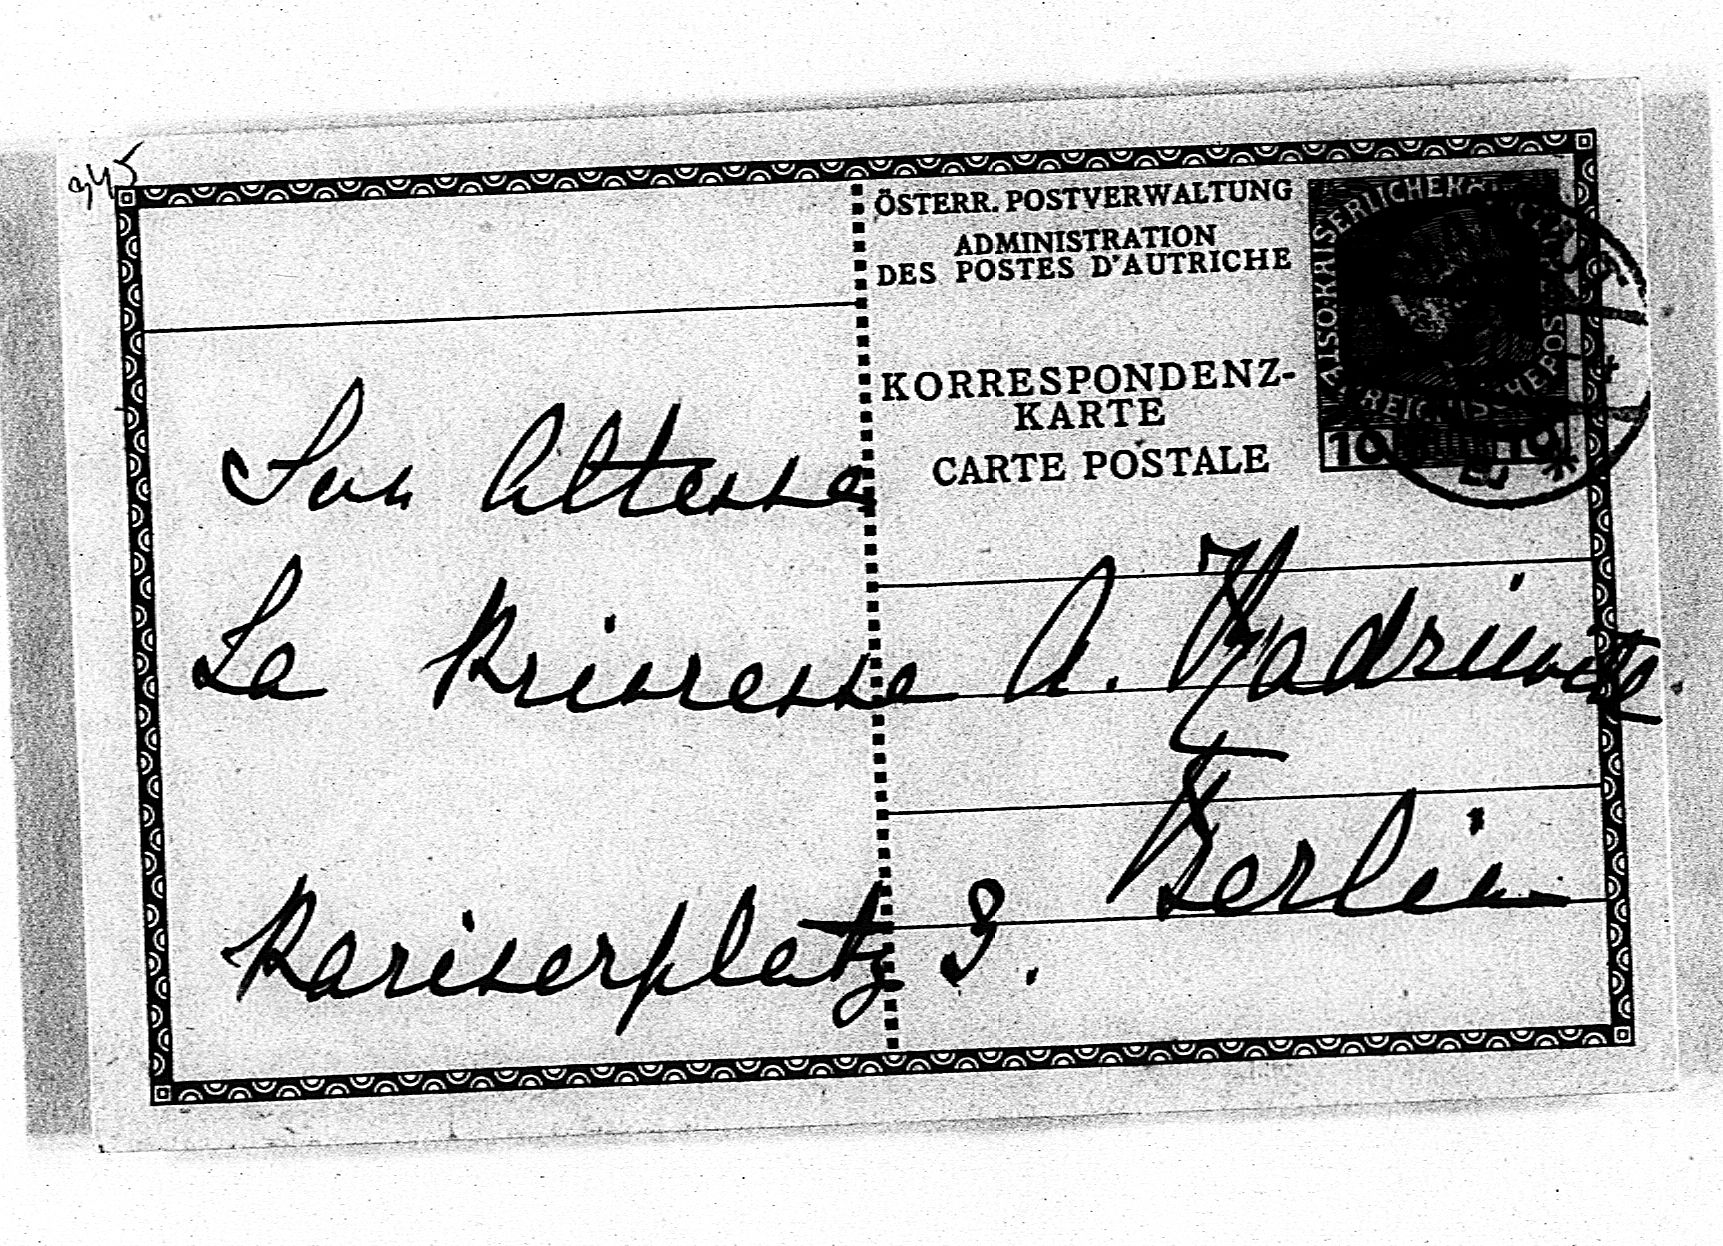 345
ÖSTERR. POSTVERWALTUNG
ADMINISTRATION
DES POSTES D'AUTRICHE
KORRESPONDENZ-
KARTE
CARTE POSTALE
10 10
Son Altesse
La Princesse A.
Berlin
Pariserplatz 3.